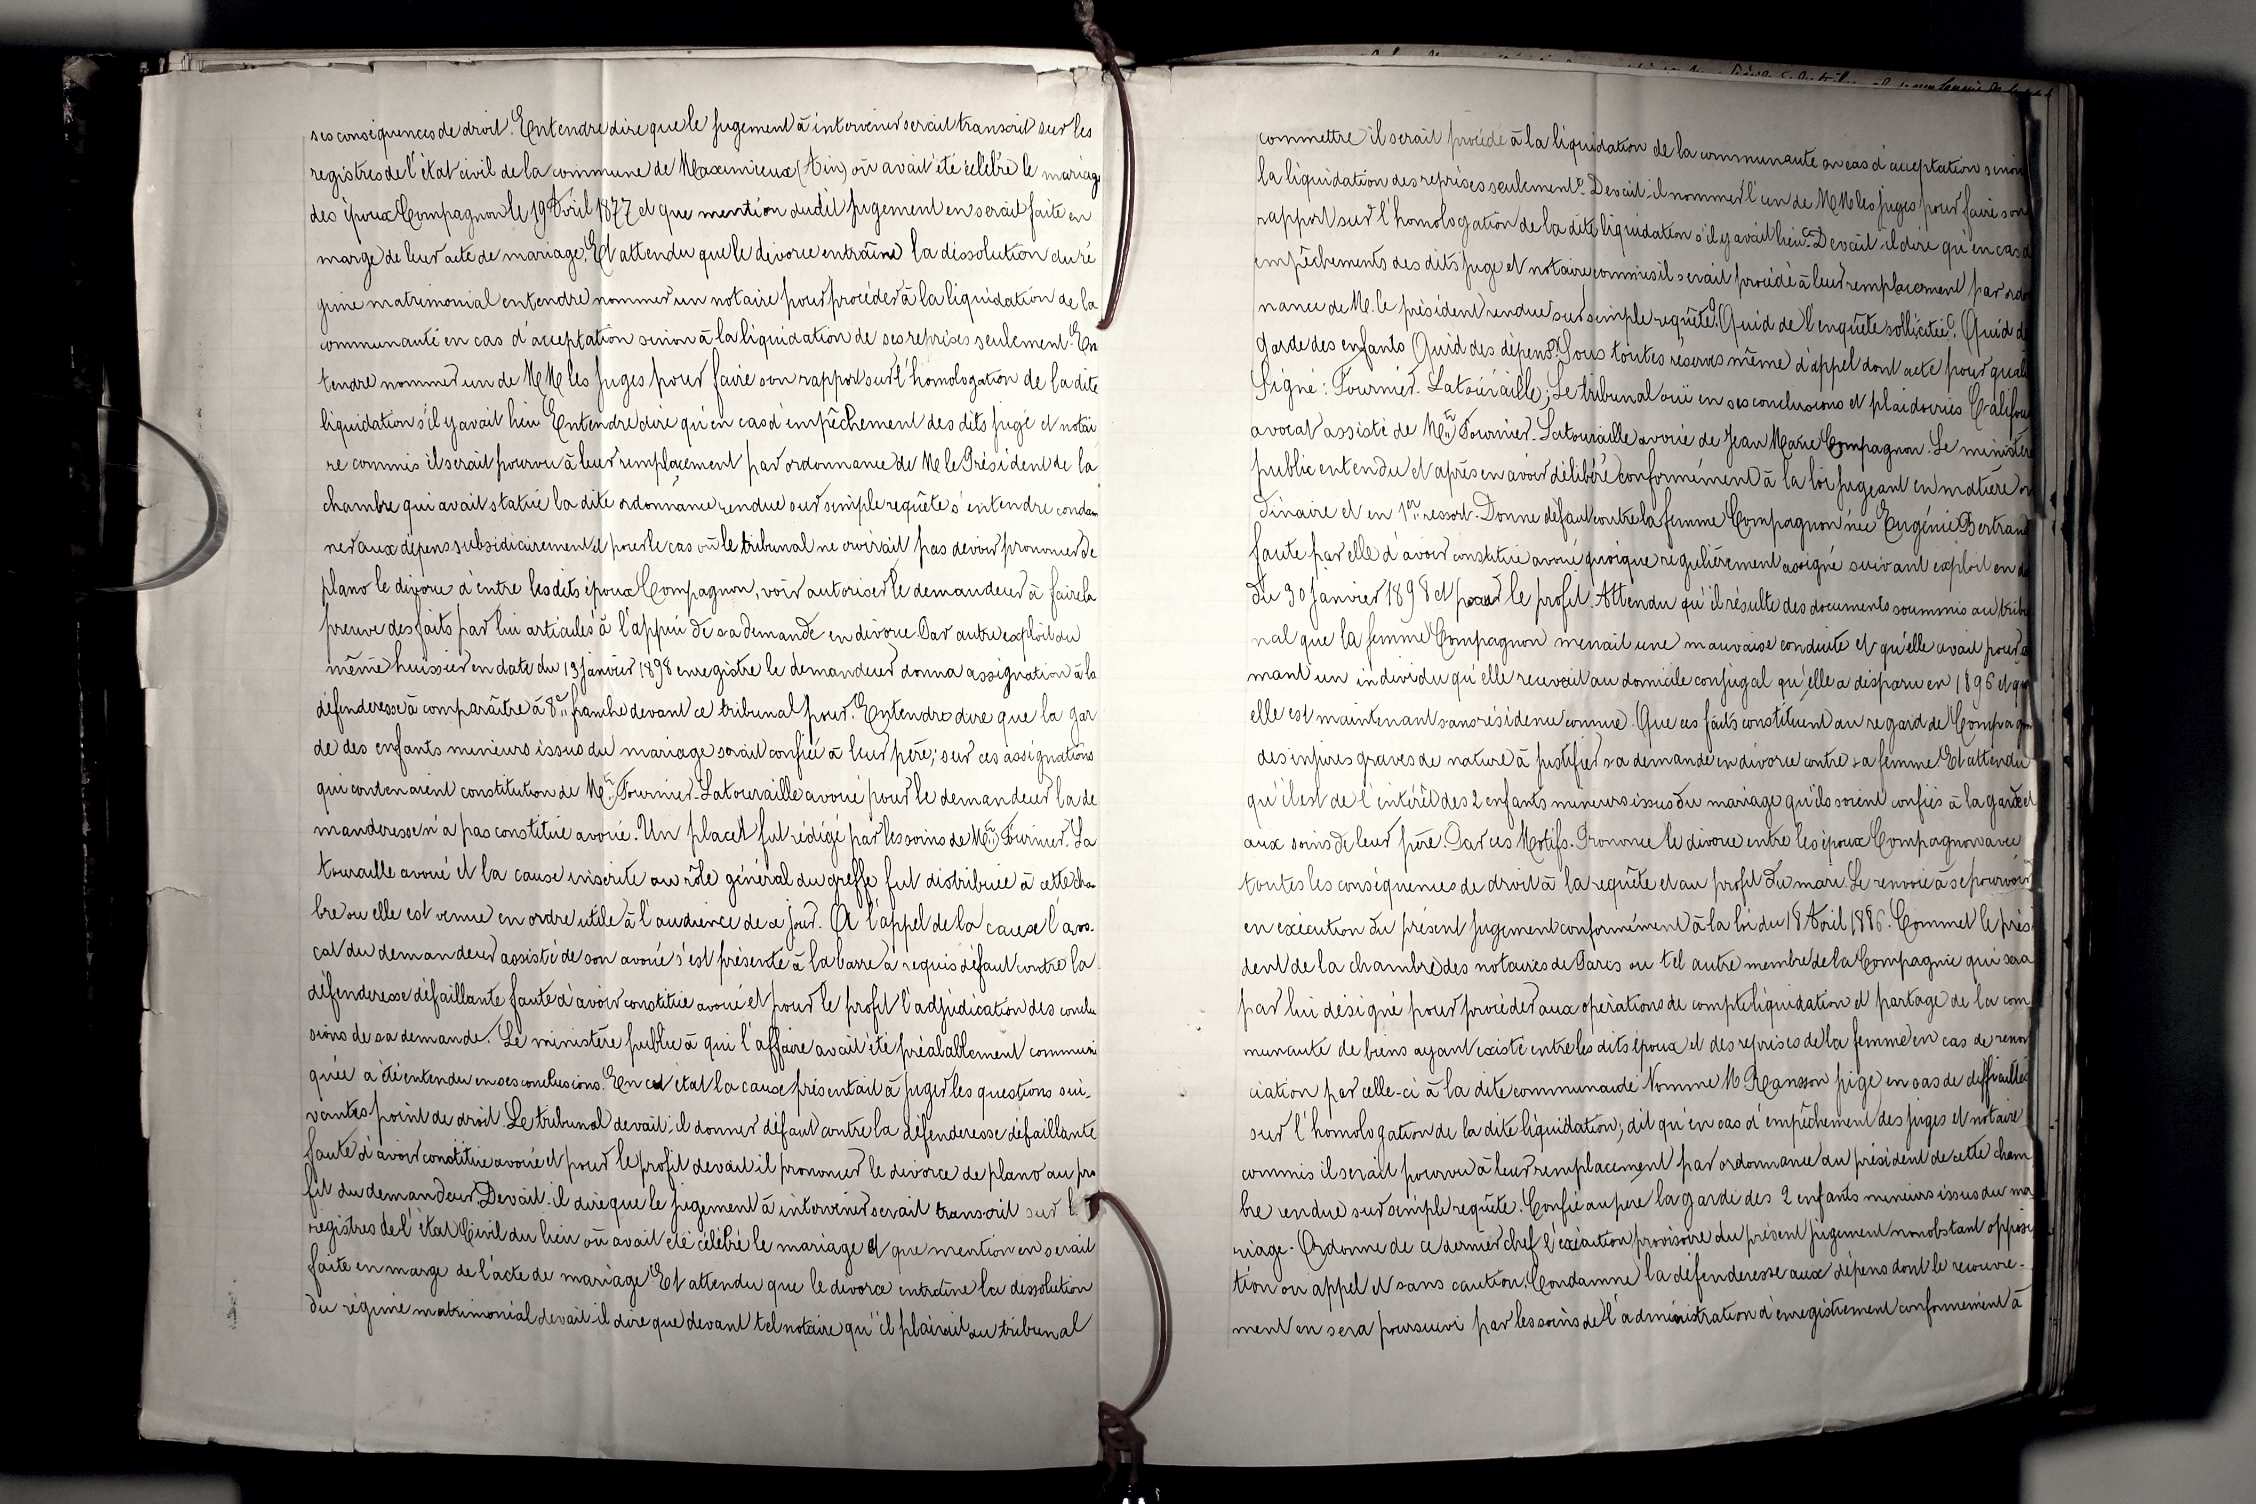 ses conséquences de droit. Entendre dire que le jugement à intervenir serait transcrit sur les
registres de l'état civil de la commune de Maximieux (Ain) où avait été célébré le mariage
des époux Compagnon le 19 Avril 1877 et que mention dudit jugement en serait faite en
marge de leur acte de mariage. Et attendu que le divorce entraîne la dissolution du ré
gime matrimonial entendre nommer un notaire pour procéder à la liquidation de la
communauté en cas d'acceptation sinon à la liquidation de ses reprises seulement. En
tendre nommer un de MM les juges pour faire son rapport sur l'homologation de la dite
liquidation s'il y avait lieu Entendre dire qu'en cas d'empêchement des dits juge et notai
re commis il serait pourvu à leur remplacement par ordonnance de M le Président de la
chambre qui avait statué la dite ordonnance rendue sur simple requête s'entendre condam
ner aux dépens subsidiairement et pour le cas où le tribunal ne croirait pas devoir prononcer de
plano le divorce d'entre les dits époux Compagnon, voir autoriser le demandeur à faire la
preuve des faits par lui articulés à l'appui de sa demande en divorce. Par autre exploit du
même huissier en date du 13 janvier 1898 enregistré le demandeur donna assignation à la
défenderesse à comparaître à 8ne franche devant ce tribunal pour. Entendre dire que la gar
de des enfants mineurs issus du mariage serait confiée à leur père; sur ces assignations
qui contenaient constitution de Me Fournier-Latouraille avoué pour le demandeur la dé
manderesse n'a pas constitué avoué. Un placet fut rédigé par les soins de Me Fournier. La
touraille avoué et la cause inscrite au rôle général du greffe fut distribuée à cette cham
bre où elle est venue en ordre utile à l'audience de ce jour. A l'appel de la cause l'avo-
cat du demandeur assisté de son avoué s'est présenté à la barre a requis défaut contre la
défenderesse défaillante faute d'avoir constitué avoué et pour le profit l'adjudication des conclu
sions de sa demande. Le ministère public à qui l'affaire avait été préalablement communi
quée a été entendu en ses conclusions. En cet état la cause présentait à juger les questions sui-
vantes point de droit. Le tribunal devait-il donner défaut contre la défenderesse défaillante
faute d'avoir constitué avoué et pour le profit devait il prononcer le divorce de plano au pro
fit du demandeur. Devait-il dire que le jugement à intervenir serait transcrit sur
registres de l'état Civil du lieu où avait été célébré le mariage et que mention en serait
faite en marge de l'acte de mariage Et attendu que le divorce entraîne la dissolution
du régime matrimonial devait-il dire que devant tel notaire qu'il plairait au tribunal
commettre il serait procédé à la liquidation de la communauté en cas d'acceptation sinon
la liquidation des reprises seulement? Devait-il nommer l'un de MM les juges pour faire son
rapport sur l'homologation de la dite liquidation s'il y avait lieu? Devait-il dire qu'en cas d
empêchements des dits juge et notaire commis il serait procédé à leur remplacement par ordon
nance de M. le président rendue sur simple requête? Quid de l'enquête sollicitée? Quid de
garde des enfants Quid des dépens? Sous toutes réserves même d'appel dont acte pour qualités
Signé: Fournier-Latouraille; Le tribunal ouï en ses conclusions et plaidoiries
avocat assisté de Me Fournier-Latouraille avoué de Jean Marie Compagnon. Le ministère
public entendu et après en avoir délibéré conformément à la loi jugeant en matière or
dinaire et en 1er ressort. Donne défaut contre la femme Compagnon née Eugénie Bertrand
faute par elle d'avoir constitué avoué quoique régulièrement assigné suivant exploit en date
du 30 janvier 1898 et pour le profit. Attendu qu'il résulte des documents soumis au tribu
nal que la femme Compagnon menait une mauvaise conduite et qu'elle avait pour a
mant un individu qu'elle recevait au domicile conjugal qu'elle a disparu en 1896 et qu'
elle est maintenant sans résidence connue. Que ces faits constituent au regard de Compagnon
des injures graves de nature à justifier sa demande en divorce contre sa femme Et attendu
qu'il est de l'intérêt des 2 enfants mineurs issus du mariage qu'ils soient confiés à la garde et
aux soins de leur père. Par ces Motifs. Prononce le divorce entre les époux Compagnon avec
toutes les conséquences de droit à la requête et au profit du mari. Le renvoie à se pourvoir
en exécution du présent jugement conformément à la loi du 18 Avril 1886. Commet le prési
dent de la chambre des notaires de Paris ou tel autre membre de la Compagnie qui sera
par lui désigné pour procéder aux opérations de compte liquidation et partage de la com
munauté de biens ayant existé entre les dits époux et des reprises de la femme en cas de renon
ciation par celle-ci à la dite communauté Nomme M Ransson juge en cas de difficultés
sur l'homologation de la dite liquidation; dit qu'en cas d'empêchement des juges et notaire
commis il serait pourvu à leur remplacement par ordonnance du président de cette cham
bre rendue sur simple requête. Confie au père la garde des 2 enfants mineurs issus du ma
riage. Ordonne de ce dernier chef l'exécution provisoire du présent jugement nonobstant opposi
tion ou appel et sans caution. Condamne la défenderesse aux dépens dont le recouvre-
ment en sera poursuivi par les soins de l'administration d'enregistrement conformément à